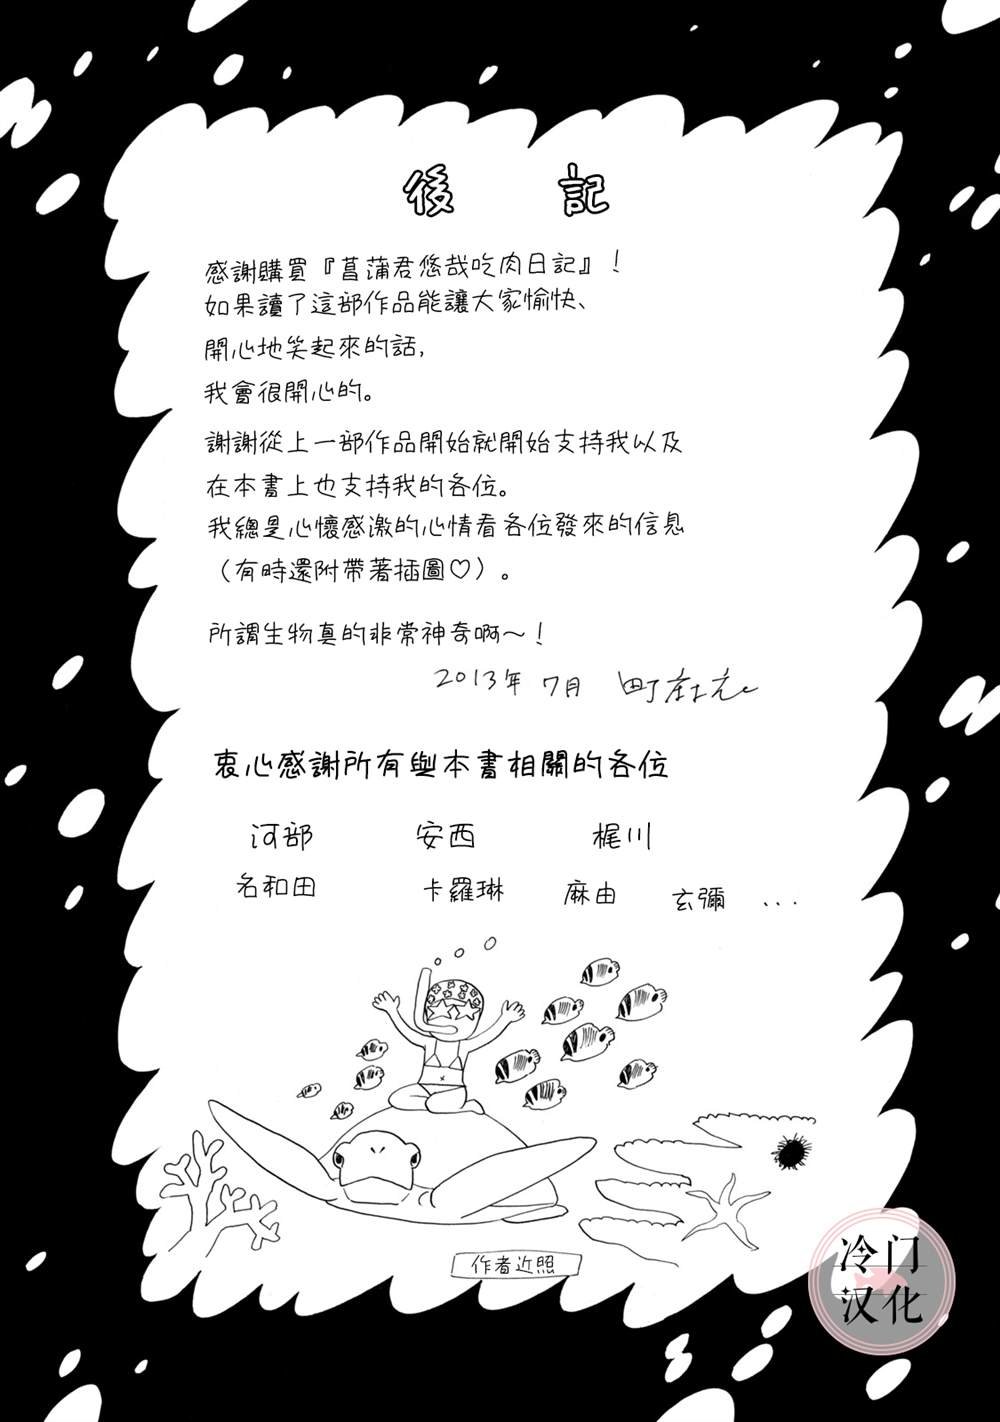 後記
感謝購買『菖蒲君悠哉吃肉日記』!
如果讀了這部作品能讓大家愉快、
開心地笑起來的話,
我會很開心的。
謝謝從上一部作品開始就開始支持我以及
在本書上也支持我的各位。
我總是心懷感激的心情看各位發來的信息
(有時還附帶著插圖♡)。
所謂生物真的非常神奇啊～!
2013年 7月
衷心感謝所有與本書相關的各位
河部 安西 梶川
名和田 卡羅琳 麻由 玄彌 ...
作者近照
冷门
汉化